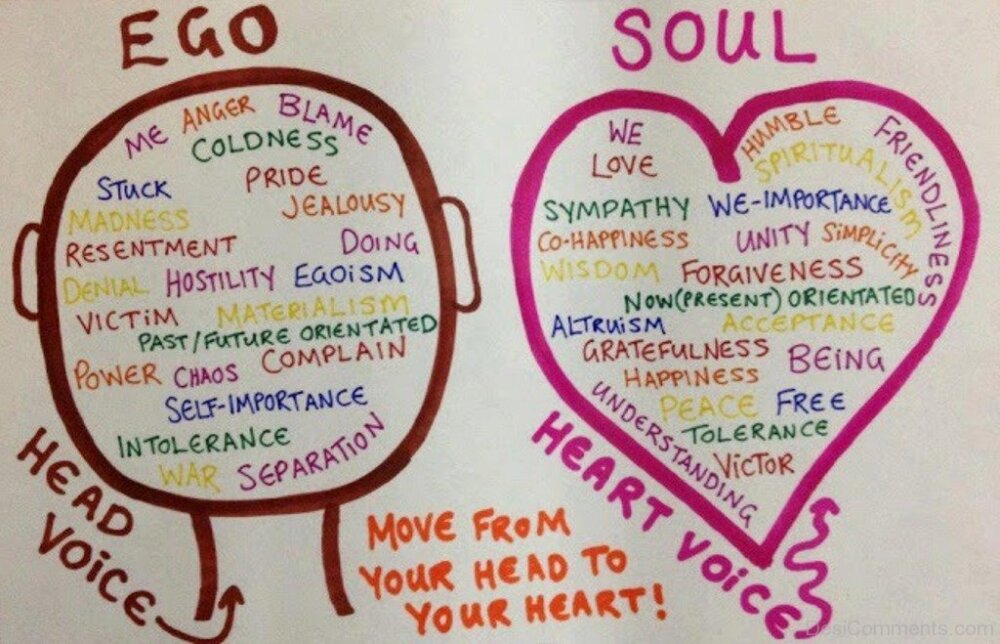 EGO
ME ANGER BLAME
COLDNESS
STUCK PRIDE
MADNESS JEALOUSY
RESENTMENT DOING
DENIAL HOSTILITY EGOISM
VICTIM MATERIALISM
PAST/FUTURE ORIENTATED
POWER CHAOS COMPLAIN
SELF-IMPORTANCE
INTOLERANCE
WAR SEPARATION
HEAD
VOICE
MOVE FROM
YOUR HEAD TO
YOUR HEART!
SOUL
WE HUMBLE FRIENDLINESS
LOVE SPIRITUALISM
SYMPATHY WE-IMPORTANCE
CO-HAPPINESS UNITY SIMPLICITY
WISDOM FORGIVENESS
NOW(PRESENT) ORIENTATED
ALTRUISM ACCEPTANCE
GRATEFULNESS BEING
HAPPINESS
UNDERSTANDING PEACE FREE
TOLERANCE
VICTOR
HEART VOICE
DesiComments.com